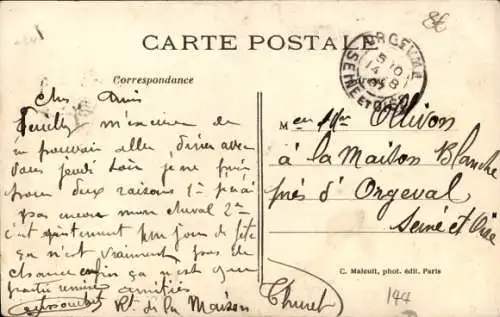 CARTE POSTALE
Correspondance
ORGEVAL
SEINE ET OISE
Cher Amis
Veuillez m'excuser de
ne pouvoir aller diner avec
vous jeudi soir je ne puis
pour deux raisons 1º j'ai
pas encore mon cheval 2º
c'est justement un jour de fête
ça n'est vraiment pas de
chance enfin ça n'est que
partie remise amitiés
Rt. de la Maison
Thuret
M Ollivon
à la Maison Blanche
près d'Orgeval
Seine et Oise
C. Malcuit, phot. édit. Paris
144